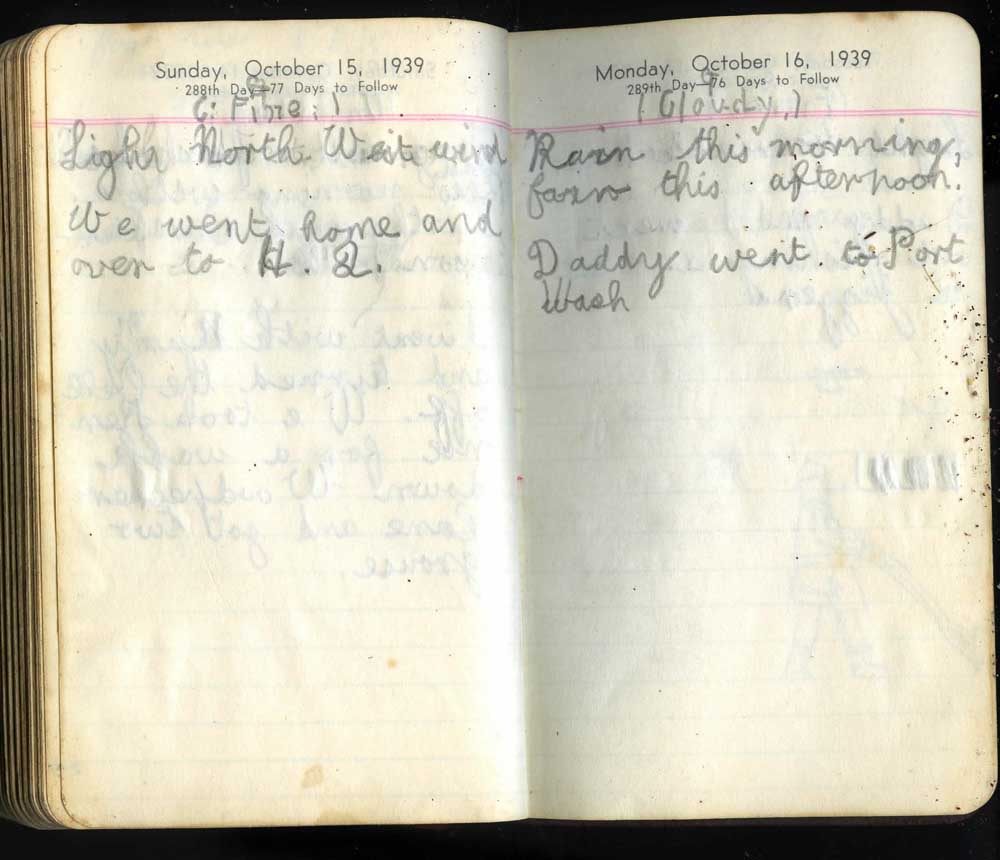 Sunday, October 15, 1939
288th Day—77 Days to Follow
(: Fine : )
Light North West wind
We went home and
over to H. Q.
Monday, October 16, 1939
289th Day—76 Days to Follow
( Cloudy, )
Rain this morning,
farw this afternoon.
Daddy went to Port
Wash